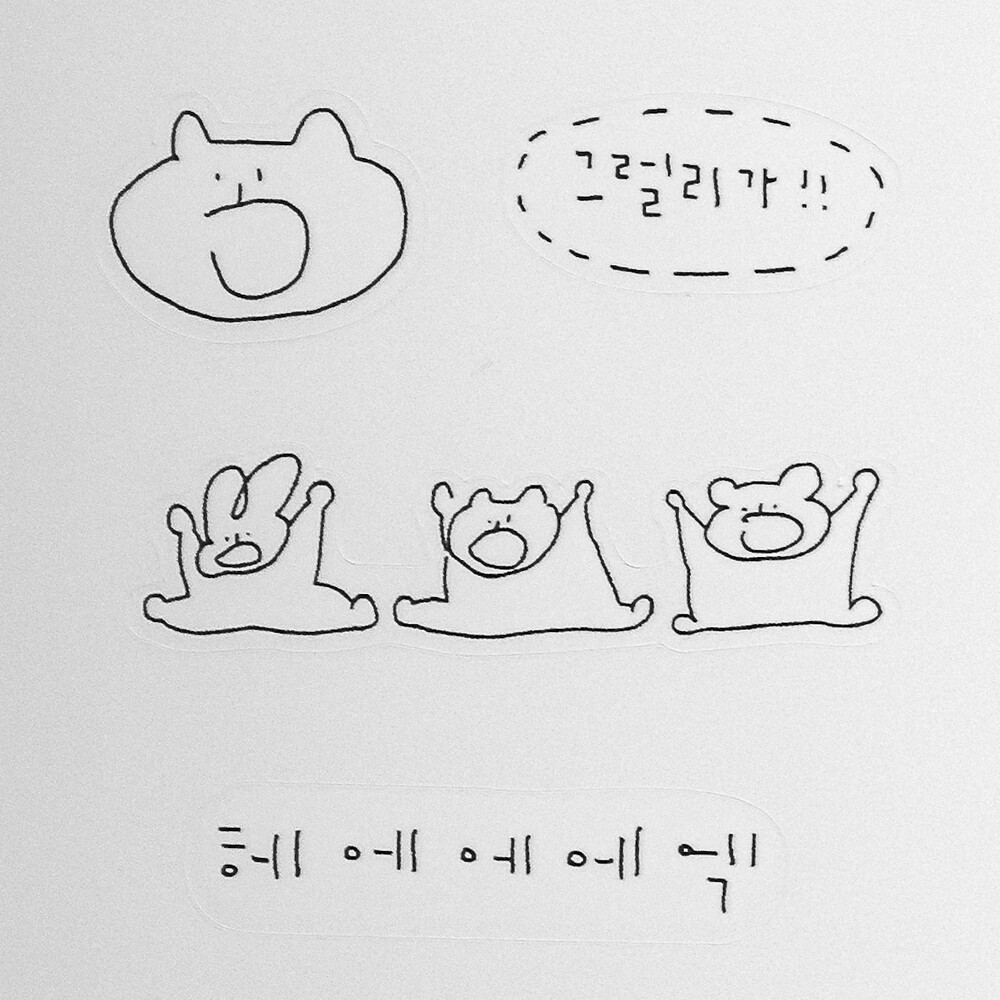 그럴리가!!
헤에에에엑